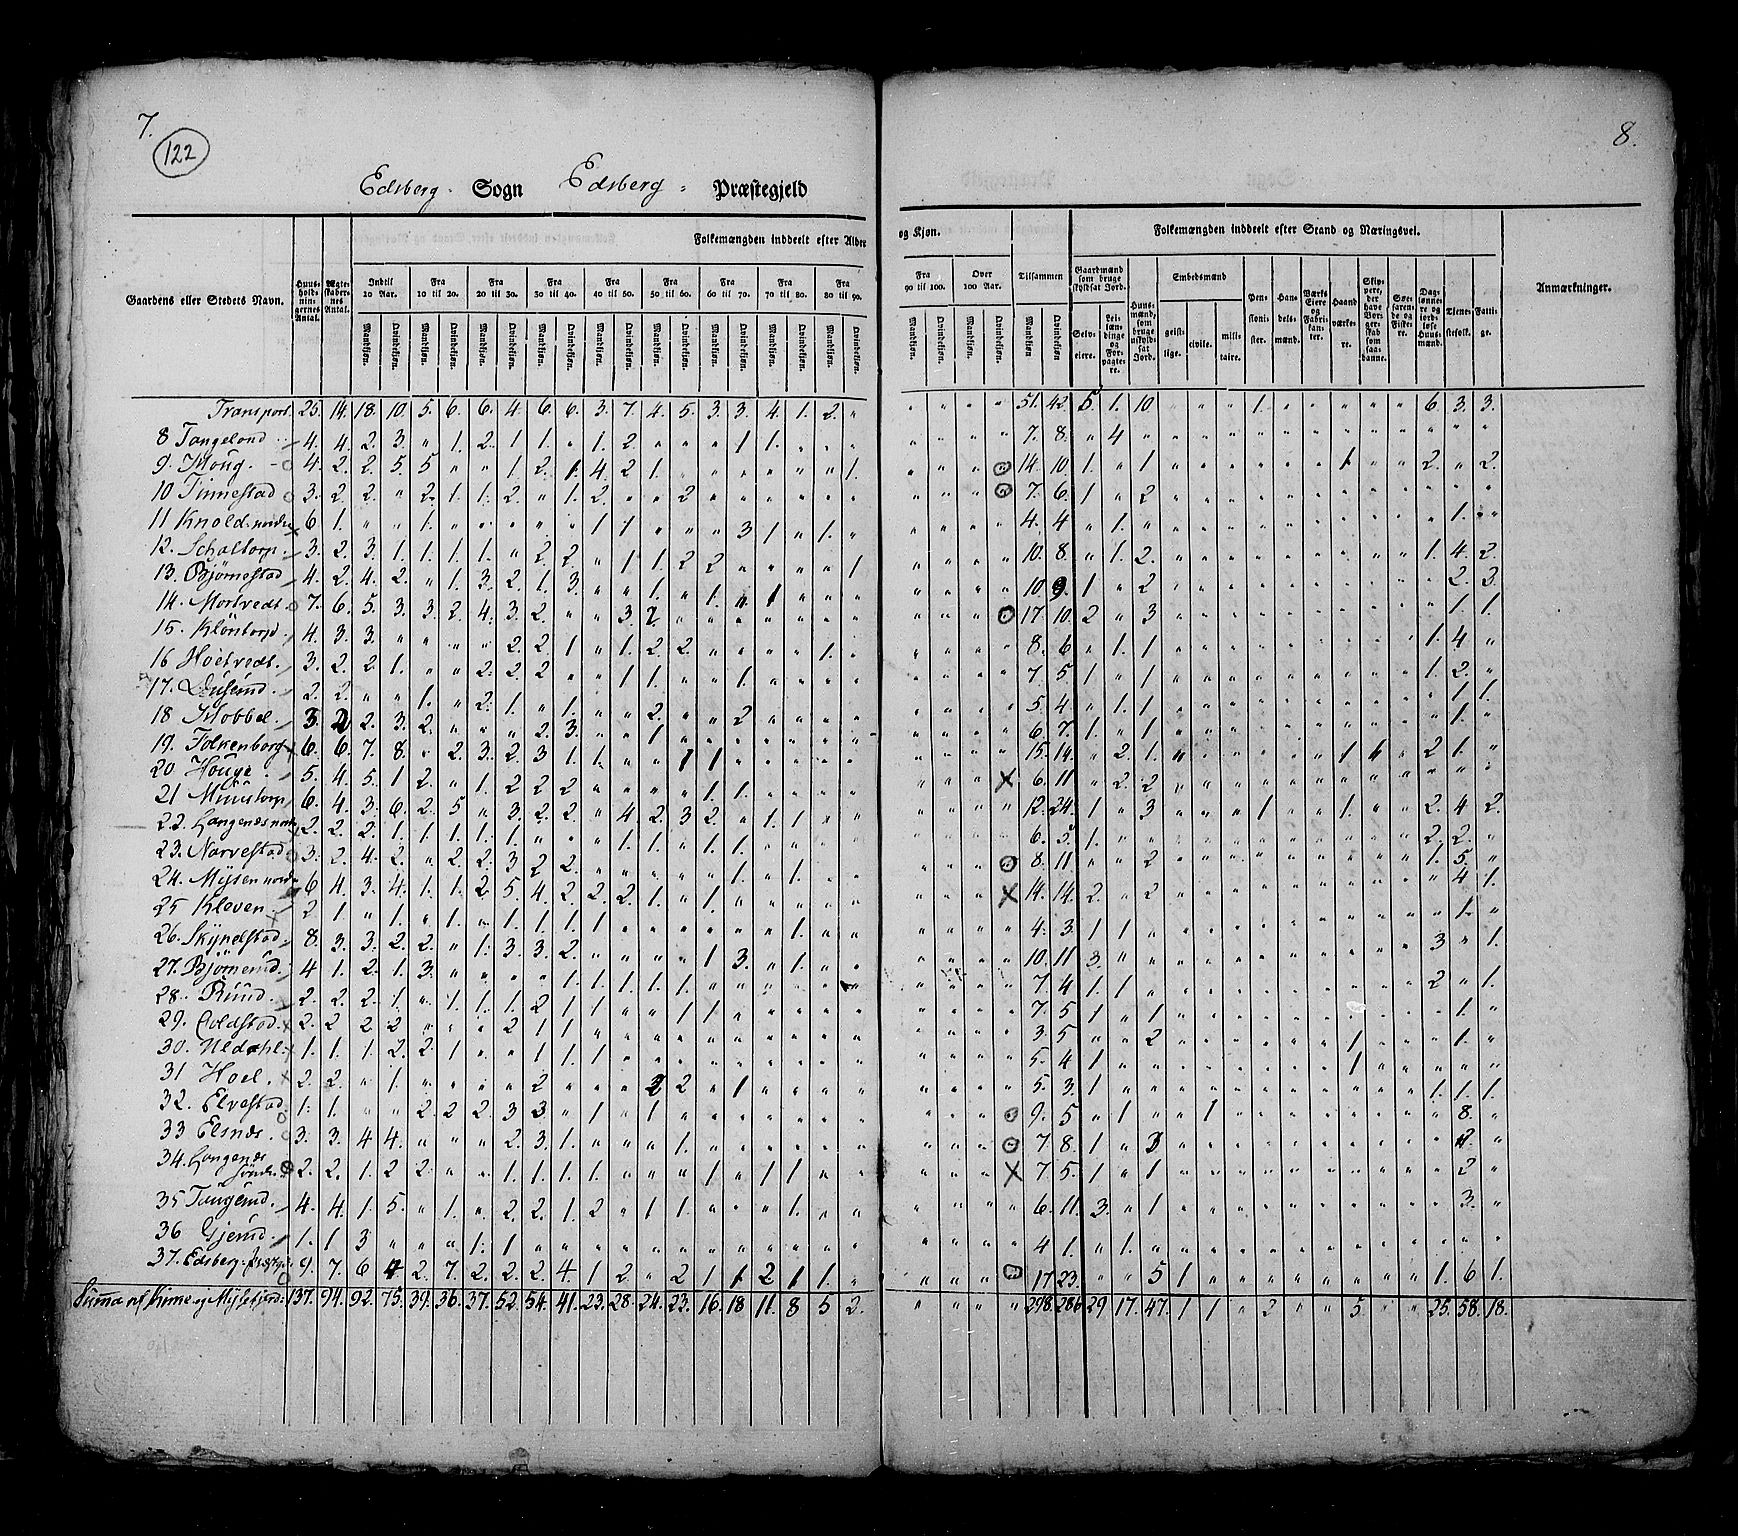 7.
122
8.
Edsberg Sogn Edsberg Præstegjeld
Gaardens eller Stedets Navn.
Huusholdningernes Antal.
Ægteskabernes Antal.
Folkemængden inddeelt efter Alder og Kjøn.
Indtil 10 Aar.
Fra 10 til 20.
Fra 20 til 30.
Fra 30 til 40.
Fra 40 til 50.
Fra 50 til 60.
Fra 60 til 70.
Fra 70 til 80.
Fra 80 til 90.
Fra 90 til 100.
Over 100 Aar.
Tilsammen
Mandkjøn. Qvindekjøn.
Folkemængden inddeelt efter Stand og Næringsvei.
Gaardmænd som bruge skyldsat Jord.
Selveiere.
Leilændinge og Forpagtere.
Huusmænd, som bruge uskyldsat Jord.
Embedsmænd
geistlige. civile. militaire.
Pensionister.
Handelsmænd.
Værks Eiere og Fabrikanter.
Haandværkere.
Skippere, der have Borgerskab som saadanne.
Søefarende og Fiskere.
Daglønnere og jordløse Huusmænd.
Tjenestefolk.
Fattige.
Anmærkninger.
Transport. 25. 14. 18. 10. 5. 6. 6. 4. 6. 6. 3. 7. 4. 5. 3. 3. 4. 1. 2. " 51. 42. 5. 1. 10 1. 6. 3. 3.
8 Tangelond 4. 4. 2. 3. " 1. 2. 1 1. " 1. 2. 1 1. 7. 8. " 4
9. Moug. 4. 2. 2. 5. 5 " " 1 2. 1. 4. 2 1. 1. 14. 10. 1. " 1 1. 2. " 2.
10 Finnestad 3. 2. 2. " 2. 1. 1. 2. " 1. 2. " " 2 7. 6. 1 " 2
11 Knold nordre 6 1. " " 1. 1 1 3 1 " 1. 4. 4 " 1. " 1.
12. Schaltorp. 3. 2. 3. 1. 1. 1. 1. " 2 2. " 1 1. 2 2 1 10. 8. " 1. 2. 1. 4. 2.
13. Bjørnestad 4. 2. 4. 2. " 1. 3. 2. 1. 3. " " 1. " 1. " 1 10. 9. 1 " 2 2. 3.
14. Mortvedt. 7. 6. 5. 3. 3. 2. 4. 3. 2. " " 3. 2 17 10. 2 " 3 1. 1.
15. Kløntorp. 4. 3. 3. 2. 2. 1 " 1. 2. 2. 1. 8. 6 " 1. 1 1. 4. "
16 Hoetvedt. 3. 2. 2. 1. " " 2. 2. 2 " " 1 1. " " 1. 7. 5 1 " 1 1. 2. "
17. Duserud. 2. 2. " " 1. " 2. 1. " 1. " " 2. " " 2 5. 4 " 1. 1 1. 1.
18 Mobbel. 3. 2 2. 3. 2. " " " 2. 3. " " 1 6. 7. 1. " 1 1.
19. Folkenborg 6. 6. 7. 8. " 2. 3. 2. 3 1. 1. " " 1 1 15. 14. " 2. 1. 1 1 " 2 1. "
20 Houge. 5. 4. 5. 1 2. " 1. 2 2 2. 1. 1. 6. 11 " 2. 2
21 Muustorp 6. 4. 3. 6. 2. 5 " 3. 2. 2. " 4. 2. 3 2. " 1. 1. 12. 24. 1 " 3 1 1. 2. 4. 2.
22. Langenæs nordre 2. 2. 2. 1. 1 1. 1. 1. 1. 1. " 1. 1. 6. 5. 1. 2. 2.
23. Narvestad 3. 2. 4. 2. " 2. 2. 3 2 2. 1. " 1. 8. 11 " " 2 1. 5. "
24. Mysen nordre 6 4. 3. 4. 1. 1. 2. 5. 4. 2 2. 2. 1. " 1. 14. 14. 2. " 2 4 1.
25 Kleven. 2 1. " 1. " 1. " 1. 1. 1. 1. 1. 4. 3. 1 1. 1. "
26. Skÿnelstad 8. 3. 3. 2. 2. " 1. 3. 3. 2. 1 3. " 1. 10. 11. 3. 3 " 1.
27. Bjørnerud. 4 1. 2. 1. 3. 1. 1. 1. 1. 1. 7. 4 1. 1 2 " 1.
28. Ruud. 2. 2. 2. 1. " 1. 1. 1. 2 1 1. 1 1 7. 5 1 " 1 1.
29. Coldstad. 2. 2 2 2 " " " 2 1 1 3. 5 " " 2 1 1.
30. Uldahl. 1. 1. 1. 2. 2. 1 " " 1. 1. 1. 5. 4 1 1
31 Hoel. 2. 2. " 1. 2 2 2. " 1 5. 3. 1 1. 1. 1.
32. Elvestad 1. 1. " " 2. 2. 2. 3 3 " 1 " 1 9. 5 " 1 " " 1 8. "
33 Elsnæs. 3. 3. 4 4. " " " 2. 3. 1. 1. 7. 8. 1 " 3 2. "
34. Langenæs søndre 2. 2. 1. 2 2. " " 1. 1. 1. 1. " " " 1 " 1 1. 7 5. 1 " 1 2 "
35 Taugerud. 4. 4. 1. 5. " 1. " 2. 2. 1. 2 " 1 1. 1. 6. 11. 3. " 1 3. "
36 Gjerud. 1. 1 3 " " " 1. 1 4 1. " 1.
37. Edsberg 9. 7. 6 4 2. 7. 2. 2. 2. 4. 1 2. " 2 1 1. 2 1 1. " 17. 23. " " 5 1 1. 6 1.
Summa af Kirne og Mysefjerd: 137. 94. 92. 75. 39. 36. 37. 52. 54. 41. 23. 28. 24. 23. 16. 18 11. 8 5 2. 298. 286 29 17. 47. 1 1 " 2 " " 5. " " 25. 58. 18.